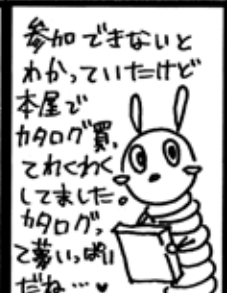 参加できないと
わかっていたけど
本屋で
カタログ買っ
てわくわく
してました。
カタログっ
て夢いっぱい
だね…♥